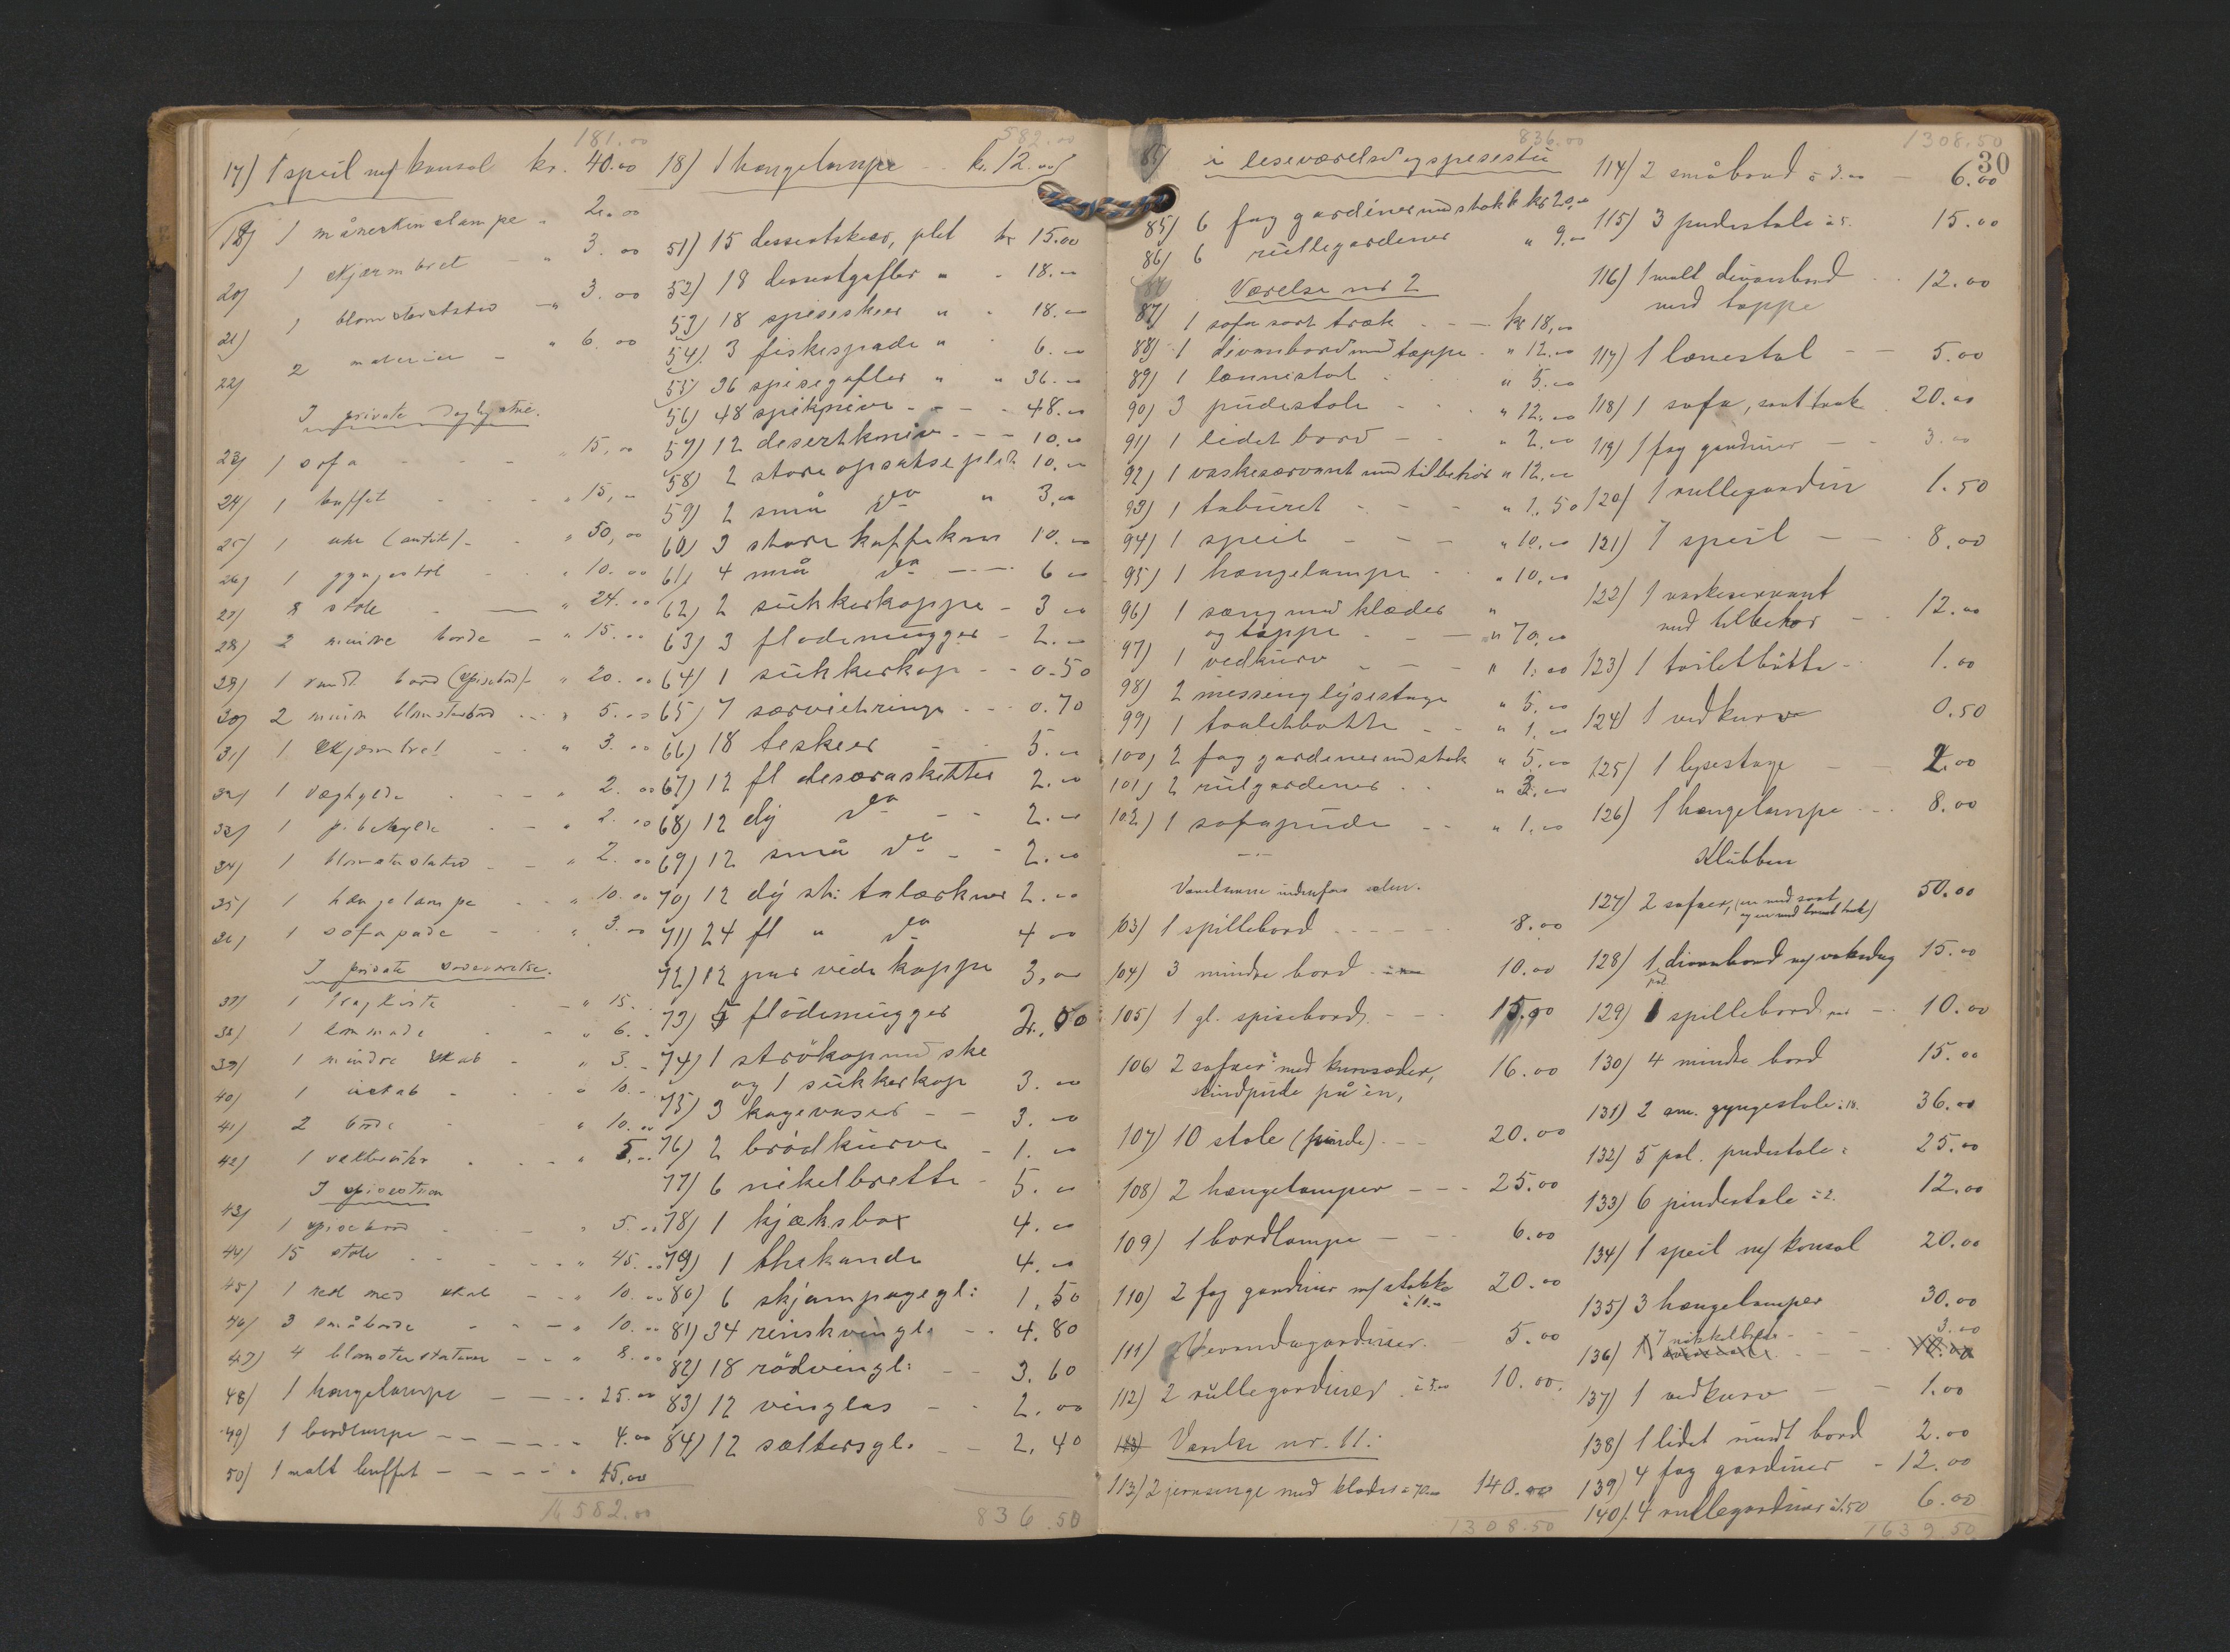 181.00
17) 1 speil m/ konsol kr. 40.00
19) 1 måneskinslampe " 2.00
20) 1 skjærmbret - " 3.00
21) 1 blomsterstativ - " 3.00
22) 2 malerier - " 6.00
I private dagligstue.
23) 1 sofa - - - " 15,00
24) 1 buffet - - - " 15,00
25) 1 uhr (antik) - - " 50,00
26) 1 gyngestol - - " 10.00
27) 8 stole - — " 24.00
28) 2 mindre borde - " 15.00
29) 1 rundt bord (spisebord) - " 20.00
30) 2 mindre blomsterbord - - " 5.00
31) 1 skjærmbret - - " 3.00
32) 1 væghylde - - - " 2.00
33) 1 pibehylde - - - " 2.00
34) 1 blomsterstativ - - " 2.00
35) 1 hængelampe - - " 10.00
36) 1 sofapude - - " 3.00
I private soveværelse.
37) 1 dragkiste - - " 15.
38) 1 kommode - - " 6.
39) 1 mindre skab - " 3.
40) 1 skab - - - " 10.
41) 2 borde - - " 10.00
42) 1 - - - " 5.00
I spisestuen
43) 1 spisebord - - - " 5.00
44) 15 stole - - - " 45.00
45) 1 med skab - - " 10.00
46) 3 småborde - - - " 10.00
47) 4 blomsterstativer - - " 8.00
48) 1 hængelampe - - - - 25.00
49) 1 bordlampe - - - - - - 4.00
50) 1 malt buffet - - - - - " 45.00
582.00
582.00
18) 1 hængelampe - kr. 12.00
51) 15 dessertskeer, plet kr 15.00
52) 18 dessertgafler " " 18.00
53) 18 spiseskeer " " 18.00
54) 3 fiskespade " " 6.00
55) 36 spisegafler " " 36.00
56) 48 spisknive - - - - 48.00
57) 12 desertkniv - - - 10.00
58) 2 store opsatse plet 10.00
59) 2 små do " 3.00
60) 3 store kaffekan 10.00
61) 4 små do - - - 6 00
62) 2 sukkerkoppe - 3 00
63) 3 flødemugger - 2.00
64) 1 sukkerkop - - 0.50
65) 7 servietringe - - - 0.70
66) 18 teskeer - - 5.00
67) 12 fl desæraskitter 2.00
68) 12 dy do - - 2.00
69) 12 små do - - 2.00
70) 12 dy st: talærkner 2.00
71) 24 fl " do 4 00
72) 12 par vide koppe 3,00
73) 5 flødemugger 2.00
74) 1 strökop med ske
og 1 sukkerkop 3.00
75) 3 kagevaser - - 3.00
76) 2 brödkurve - 1.00
77) 6 nikelbrette - 5.00
78) 1 kjæksbox 4.00
79) 1 thekande 4.00
80) 6 skjampagegl: 1,50
81) 34 rinskvingl. - - 4.80
82) 18 rödvingl: - - 3.60
83) 12 vinglas - - 2.00
84) 12 seltersgl. - - 2.40
836.50
836.00
i leseværelse og spisestu
85) 6 fag gardiner med stokk kr 20,00
86) 6 rullegardener " 9.00
Værelse nr 2
87) 1 sofa sort træk - - — kr 18,00
88) 1 divanbord med tæppe - " 12.00
89) 1 lænnestol - " 5.00
90) 3 pudestole - - - " 12.00
91) 1 lidet bord - - " 2.00
92) 1 vaskeservant med tilbehör " 12,00
93) 1 taburet - - - " 1.50
94) 1 speil - - — " 10,00
95) 1 hængelampe - - " 10,00
96) 1 seng med klæder "
og tæppe - - — " 70,00
97) 1 vedkurv - - - " 1.00
98) 2 messing lysestage " 5.00
99) 1 toaletbøtte - - " 1.00
100) 2 fag gardener med stok " 5.00
101) 2 rulgardener - - " 3.00
102) 1 sofapude - - " 1.00
Værelserne indenfor salen.
103) 1 spillebord - - - - - 8.00
104) 3 mindre bord - - - 10.00
105) 1 gl. spisebord - - - 15.00
106) 2 sofaer med kurvsæder, 16.00
skindpude på én,
107) 10 stole (pinde) - - - 20.00
108) 2 hængelamper - - - 25.00
109) 1 bordlampe - - - 6.00
110) 2 fag gardiner m/ stokke 20.00
à 10.00
111) 2 Verandagardiner. - 5.00
112) 2 rullegardiner à 5.00 10.00.
113) Værelse nr. 11:
113) 2 jernsenge med klæder à 70.00 140.00
1308.50
1308.50
30
114) 2 småbord à 3.00 - 6.00
115) 3 pudestole à 5. 15.00
116) 1 malt divanbord - - 12.00
med tæppe
117) 1 lænestol - - 5.00
118) 1 sofa, sort træk 20.00
119) 1 fag gardiner - - 3.00
120) 1 rullegardin 1.50
121) 1 speil - - - 8.00
122) 1 vaskeservant
med tilbehør - - 12.00
123) 1 toiletbøtte - 1.00
124) 1 vedkurv 0.50
125) 1 lysestage - - 2.00
126) 1 hængelampe - - - 8.00
Klubben
127) 2 sofaer, (en med sort 50.00
og en med brunt træk)
128) 1 divanbord m/ voksdug 15.00
pol.
129) 1 spillebord - 10.00
130) 4 mindre bord 15.00
131) 2 am. gyngestole à 18. 36.00
132) 5 pol. pudestole à 25.00
133) 6 pindestole à 2. 12.00
134) 1 speil m/ konsol 20.00
135) 3 hængelamper 30.00
136) 7 nikkelbrett - - - 3.00
137) 1 vedkurv - - 1.00
138) 1 lidet rundt bord 2.00
139) 4 fag gardiner - 12.00
140) 4 rullegardiner à 1.50 6.00
1639.50